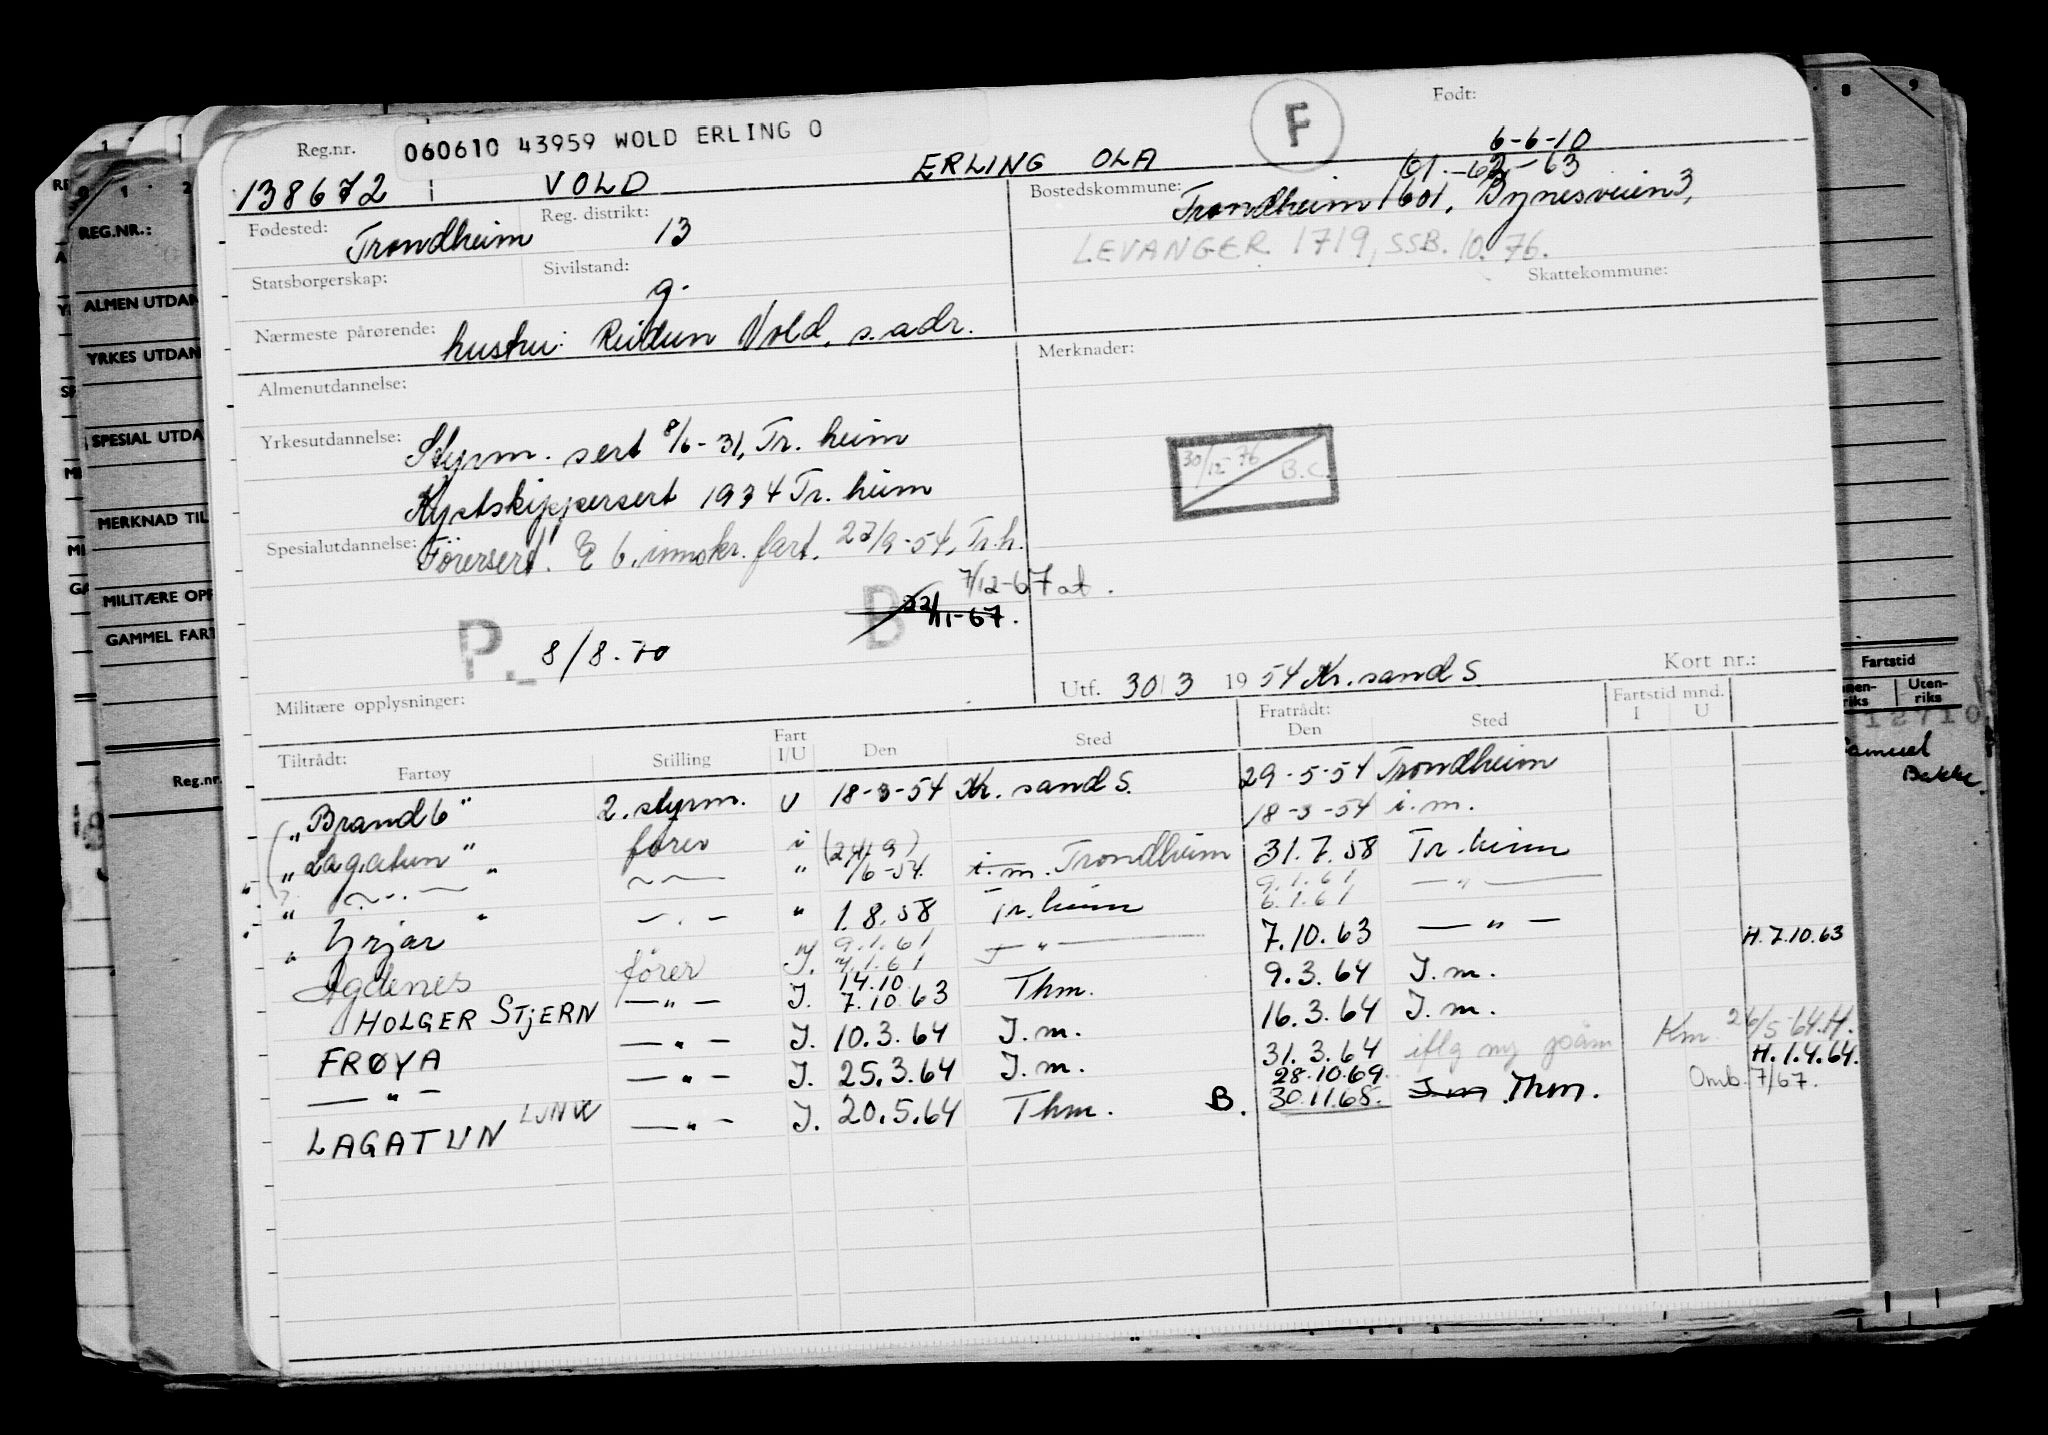 Reg.nr. 060610 43959 WOLD ERLING O F Født:
6-6-10
138672 VOLD ERLING OLA 01.-62-63
Bostedskommune: Trondheim 1601, Bynesveien 3,
Fødested: Trondheim Reg. distrikt: 13
LEVANGER 1719, SSB. 10.76.
Statsborgerskap: Sivilstand: g. Skattekommune:
Nærmeste pårørende: hustru: Reidun Vold, s. adr.
Almenutdannelse: Merknader:
Yrkesutdannelse: Styrm. sert 8/6-31, Tr. heim
30/12-76 B.C.
Kystskippersert 1934 Tr. heim
Spesialutdannelse: Førersert. 6. innskr. fart. 23/9-54, Tr.h.
7/12-67 at.
B 22/11-67.
P. 8/8.70
Utf. 30/3 1954 Kr.sand S Kort nr.:
Militære opplysninger:
Tiltrådt: Fartøy Stilling Fart I/U Den Sted Fratrådt: Den Sted Fartstid mnd. I U
"Brand 6" 2. styrm. U 18-3-54 Kr. sand S. 29-5-54 Trondheim
18-3-54 i.m.
"Lagatun" fører i (24/9) /6-54. i.m. Trondheim 31.7.58 Tr. heim
9.1.61
" 1.8.58 Tr. heim 6.1.61 — " —
"Yrjar" 9.1.61 — " — 7.10.63 — " — H.7.10.63
Agdenes fører J. 7.1.61 9.3.64 J.m.
14.10
HOLGER STJERN — " — J. 7.10.63 Thm. 16.3.64 J.m.
FRØYA — " — J. 10.3.64 J.m. 31.3.64 iflg Km. 26/5-64.H.
— " — — " — J. 25.3.64 J.m. 28.10.69 H.1.4.64.
LAGATUN — " — J. 20.5.64 Thm. B. 30.11.68. J.m. Thm. Omb. 7/67.
REG.NR.:
ALMEN UTDAN
YRKES UTDAN
SPESIAL UTDA
MERKNAD TIL
MILITÆRE OPP
GAMMEL FART
Reg.nr.
8 9
Fartstid
Uten-riks
12710
Samuel
Bakke.